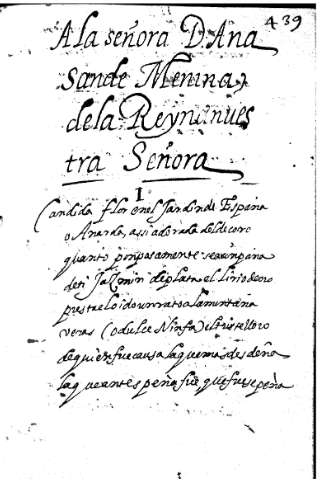 439
A la señora D Ana
Sande Menina
de la Reyna nues
tra Señora
I
Candida flor en el Jardin de España
o Anarda, assi adorada del decoro
quanto
de ti Jazmin de plata el lirio de oro
presta el oido un rato a la
veras (o dulce Ninfa) el triste lloro
de quien fue causa la que mas desdeña
la que antes peña fue, que fuesse peña